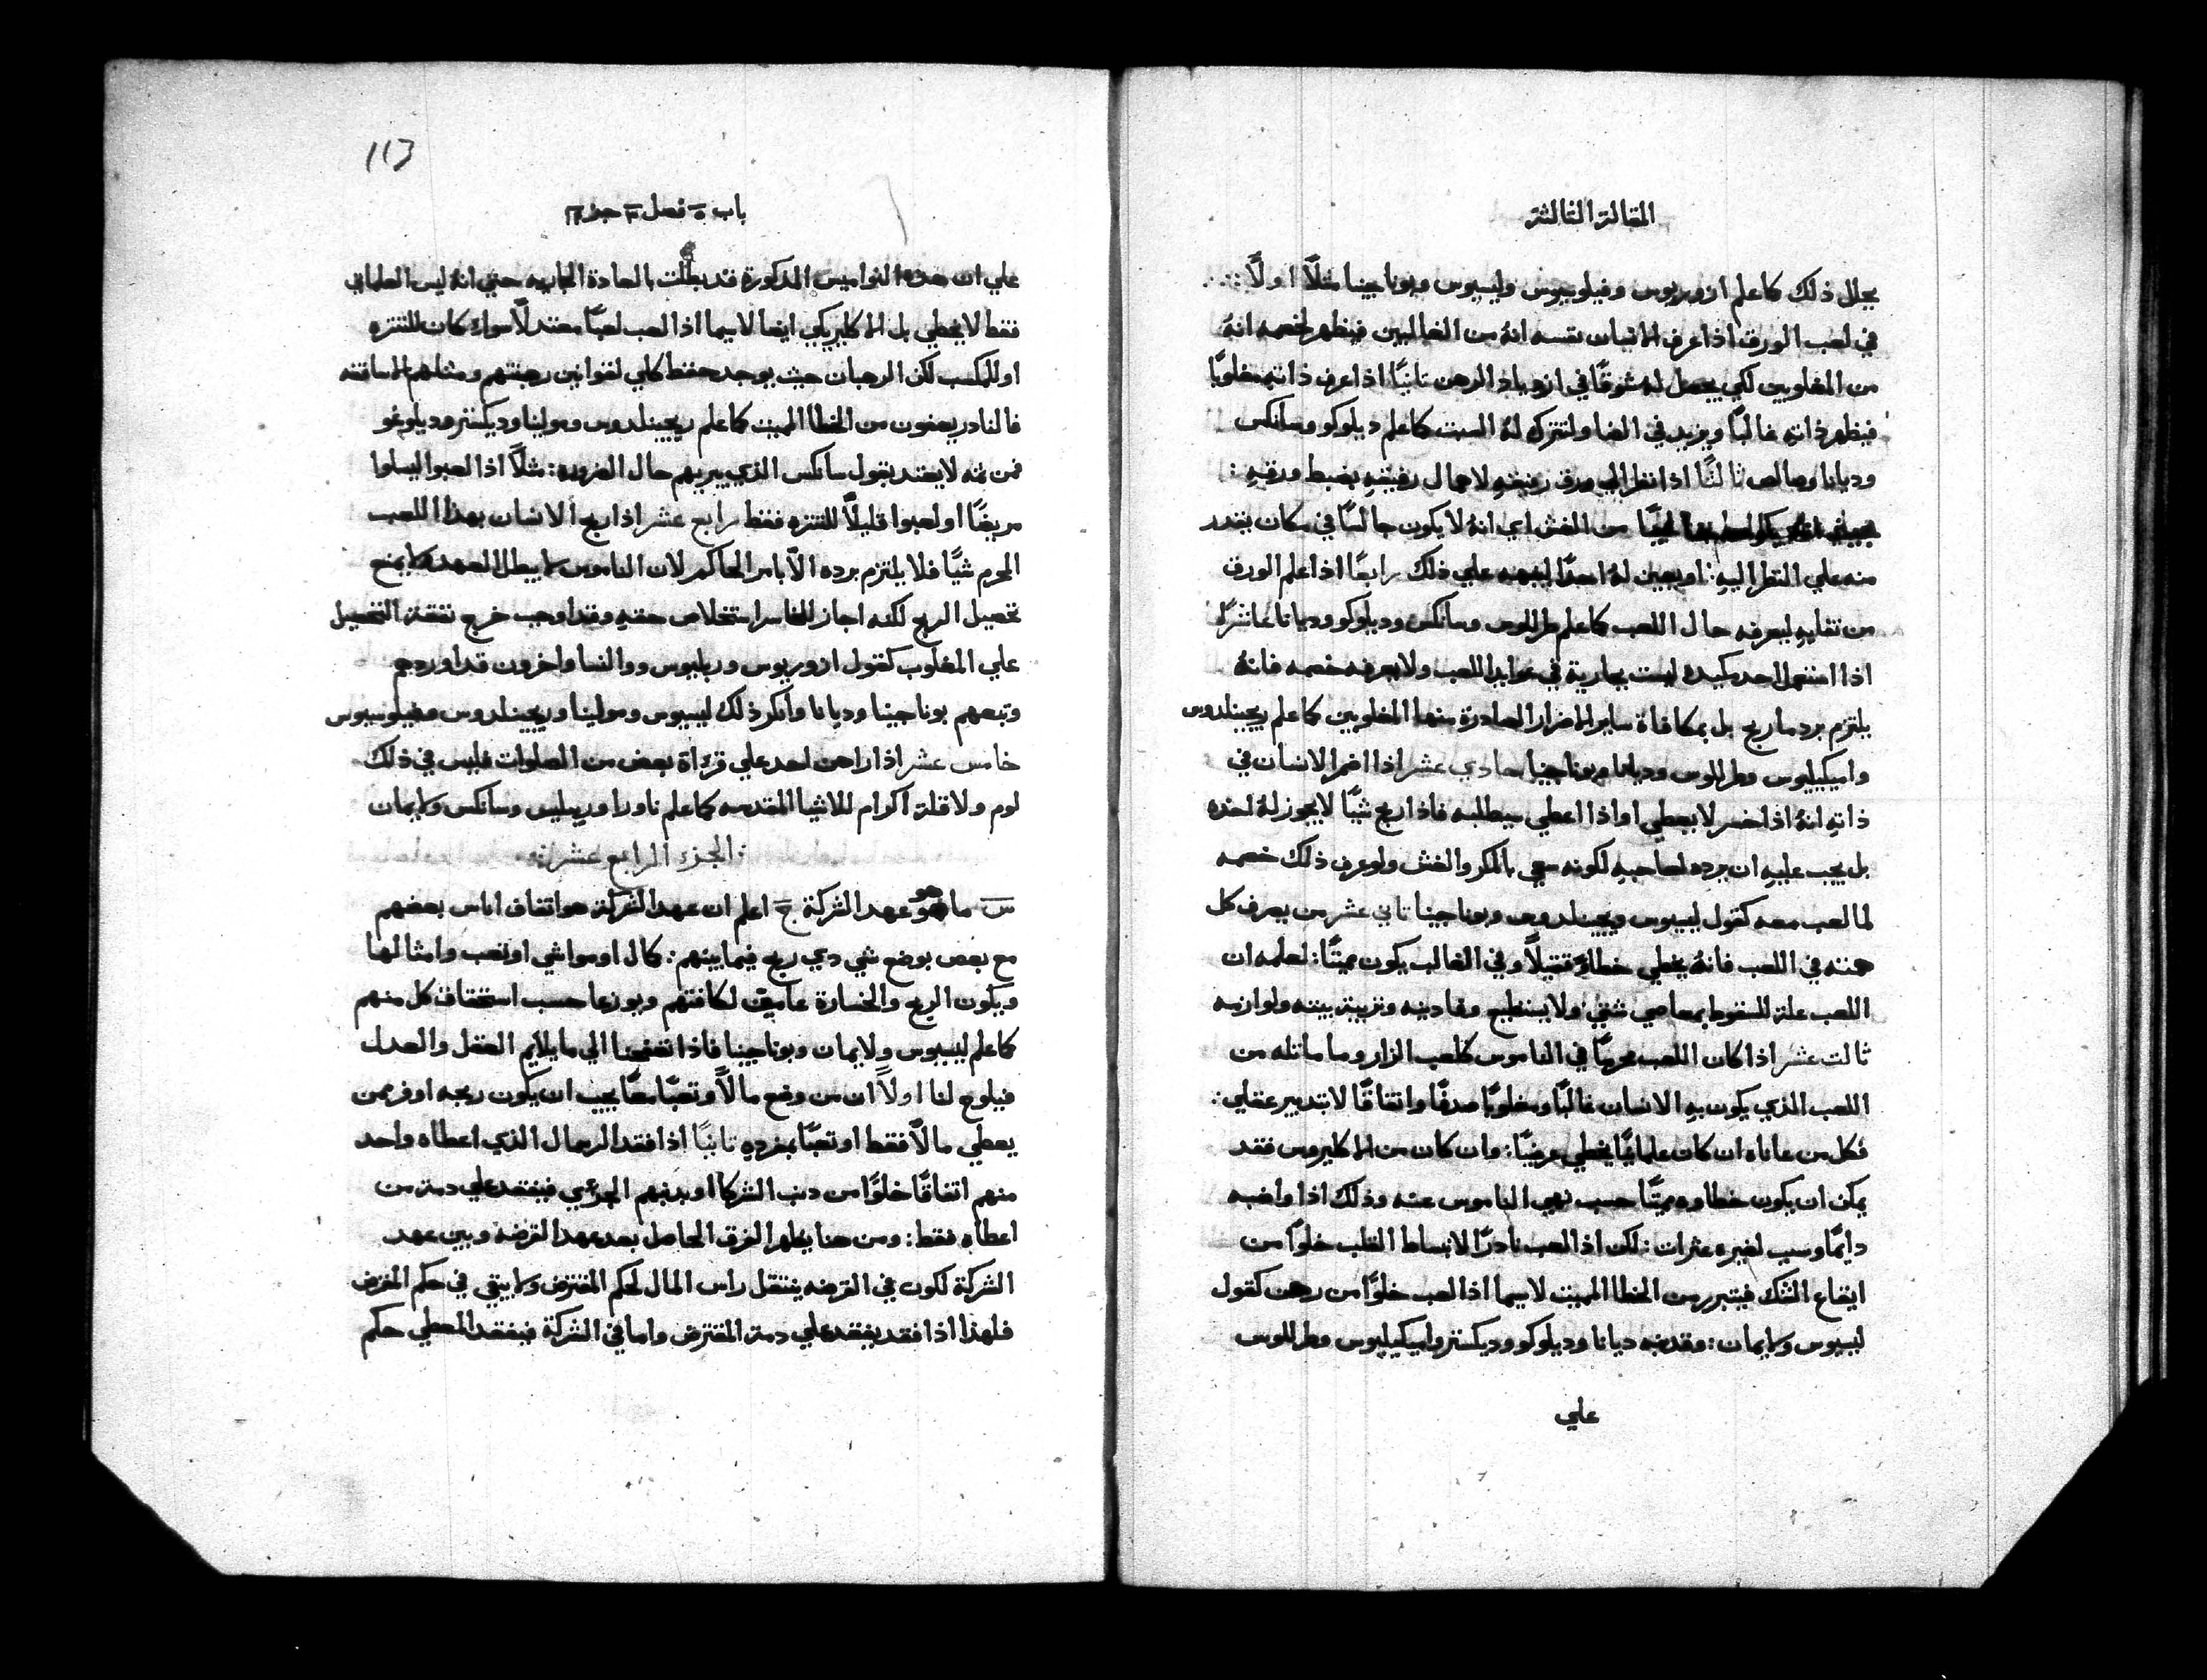 المقالة الثالثة
يحلل ذلك كما علم ازوريوس وفيلوسيوس وليسيوس وبوناجينا مثلاً اولاً
في لعب الورق اذا عرف الانسان نفسه انهُ من الغالبين فيظهر لخصمه انهُ
من المغلوبين لكي يحصل له شوقًا في ازدياد الرهن ثانيًا اذا عرف ذاته مغلوبًا
فيظهر ذاته غالبًا ويزيد في الضا ولتترك لهُ الست كما علم ديلوكو وسانكس
وديانا وصالص ثالثًا اذا نظر الي ورق رفيقهِ لاهمال رفيقهِ بضبط ورقهِ:
من الغش اي انهُ لا يكون جالسًا في مكان يقدر
منه علي النظر اليهِ: او يعين لهُ احدًا لينبهه علي ذلك رابعًا اذا علم الورق
من تقليبهِ ليعرفه حال اللعب كما علم طرللوس وسانكس وديلوكو وديانا عاشرًا
اذا استعمل احد مكيدة ليست بجارية في عوايد اللعب ولا يعرفه خصمه فانهُ
يلتزم برد ما ربح بل بمكافاة ساير الاضرار الصادرة منها المغلوبين كما علم ريجينلدوس
واميكيليوس وطرللوس وديانا وبوناجينا حادي عشر اذا اضمر الانسان في
ذاته انهُ اذا خسر لا يعطي او اذا اعطي سيطلبه فاذا ربح شيًا لا يجوز لهُ اخده
بل يجب عليهِ ان يرده لصاحبهِ لكونه سعي بالمكر والغش ولو عرف ذلك خصمه
لما لعب معه كقول ليسيوس وريجينلدوس وبوناجينا ثاني عشر من يصرف كل
همته في اللعب فانهُ يخطي خطاءً ثقيلاً وفي الغالب يكون مميتًا: لعلمه ان
اللعب علة للسقوط بمعاصي شتي ولا يستطيع وقادينه وتربية بيته ولوازمه
ثالث عشر اذا كان اللعب محرمًا في الناموس كلعب الزار وما ماثله من
اللعب الذي يكون بهِ الانسان غالبًا ومغلوبًا صدفًا واتفاقًا لا بتدبير عقلي:
فكل من عاناه ان كان علمانيًا يخطي عرضيًا: وان كان من الاكليروس فقد
يمكن ان يكون خطاوه مميتًا حسب نهي الناموس عنه وذلك اذا واضبه
دايمًا وسبب لغيره عثرات: لكن اذا لعب نادرًا لانبساط القلب خلوًا من
ايقاع الشك فيتبرر من الخطا المميت لا سيما اذا لعب خلوًا من رهن كقول
ليسيوس ولايمان: وقد نبه ديانا وديلوكو وديكستر واميكيليوس وطرللوس
علي
113
باب ٥ فصل ٣ جز ١٣
علي ان هذه النواميس المذكورة قد بطلت بالعادة الجاريه حتي انهُ ليس العلماني
فقط لا يخطي بل الاكليريكي ايضا لا سيما اذا لعب لعبًا معتدلاً سواء كان للتنزه
او للمكسب لكن الرهبان حيث يوجد حفظ كلي لقوانين رهبنتهم ومثلهم الاساقفه
فالنادر يعفون من الخطا المميت كما علم ريجينلدوس ومولينا وديكستر وديلوغو
فمن ثمه لا يعتد بقول سانكس الذي يبريهم حال الضروره: مثلاً اذا لعبوا ليسلوا
مريضًا او لعبوا قليلاً للتنزه فقط رابع عشر اذا ربح الانسان بهذا اللعب
المحرم شيًا فلا يلتزم برده الاّ بامر الحاكم لان الناموس لا يبطل العهد ولا يمنع
تحصيل الربح لكنه اجاز للخاسر استخلاص حقهِ وقد اوجب خرج نفقة التحصيل
علي المغلوب كقول ازوريوس وربليوس ووالنسا واخرون قد اوردهم
وتبعهم بوناجينا وديانا وانكر ذلك ليسيوس ومولينا وريجينلدوس وفيلوسيوس
خامس عشر اذا راهن احد علي قراة بعض من الصلوات فليس في ذلك
لوم ولا قلة اكرام للاشيا المقدسه كما علم ناورا وربيليس وسانكس ولايمان
الجزء الرابع عشر
س ما هو عهد الشركة ج اعلم ان عهد الشركة هو اتفاق اناس بعضهم
مع بعض بوضع شي دي ربح فيما بينهم: كمال او مواشي او تعب وامثالها
ويكون الربح والخسارة عاميين لكافتهم ويوزعا حسب استحقاق كل منهم
كما علم ليسيوس ولايمان وبوناجينا فاذا تفهمنا الي ما يلايم العقل والعدل
فيلوح لنا اولاً ان من وضع مالاً وتعبًا معًا يجب ان يكون ربحه اوفر ممن
يعطي مالاً فقط او تعبًا بمفرده ثانيًا اذا فقد الرسمال الذي اعطاه واحد
منهم اتفاقًا خلوًا من دنب الشركا او بدنبهم الجزئي فيفقد علي دمة من
اعطاه فقط: ومن هنا يظهر الفرق الحاصل بعد عهد القرضه وبين عهد
الشركة لكون في القرضه ينتقل راس المال لحكم المقترض ولا يبقي في حكم المقرض
فلهذا اذا فقد يفقد علي دمة المقترض واما في الشركة فيفقد المعطي حكم